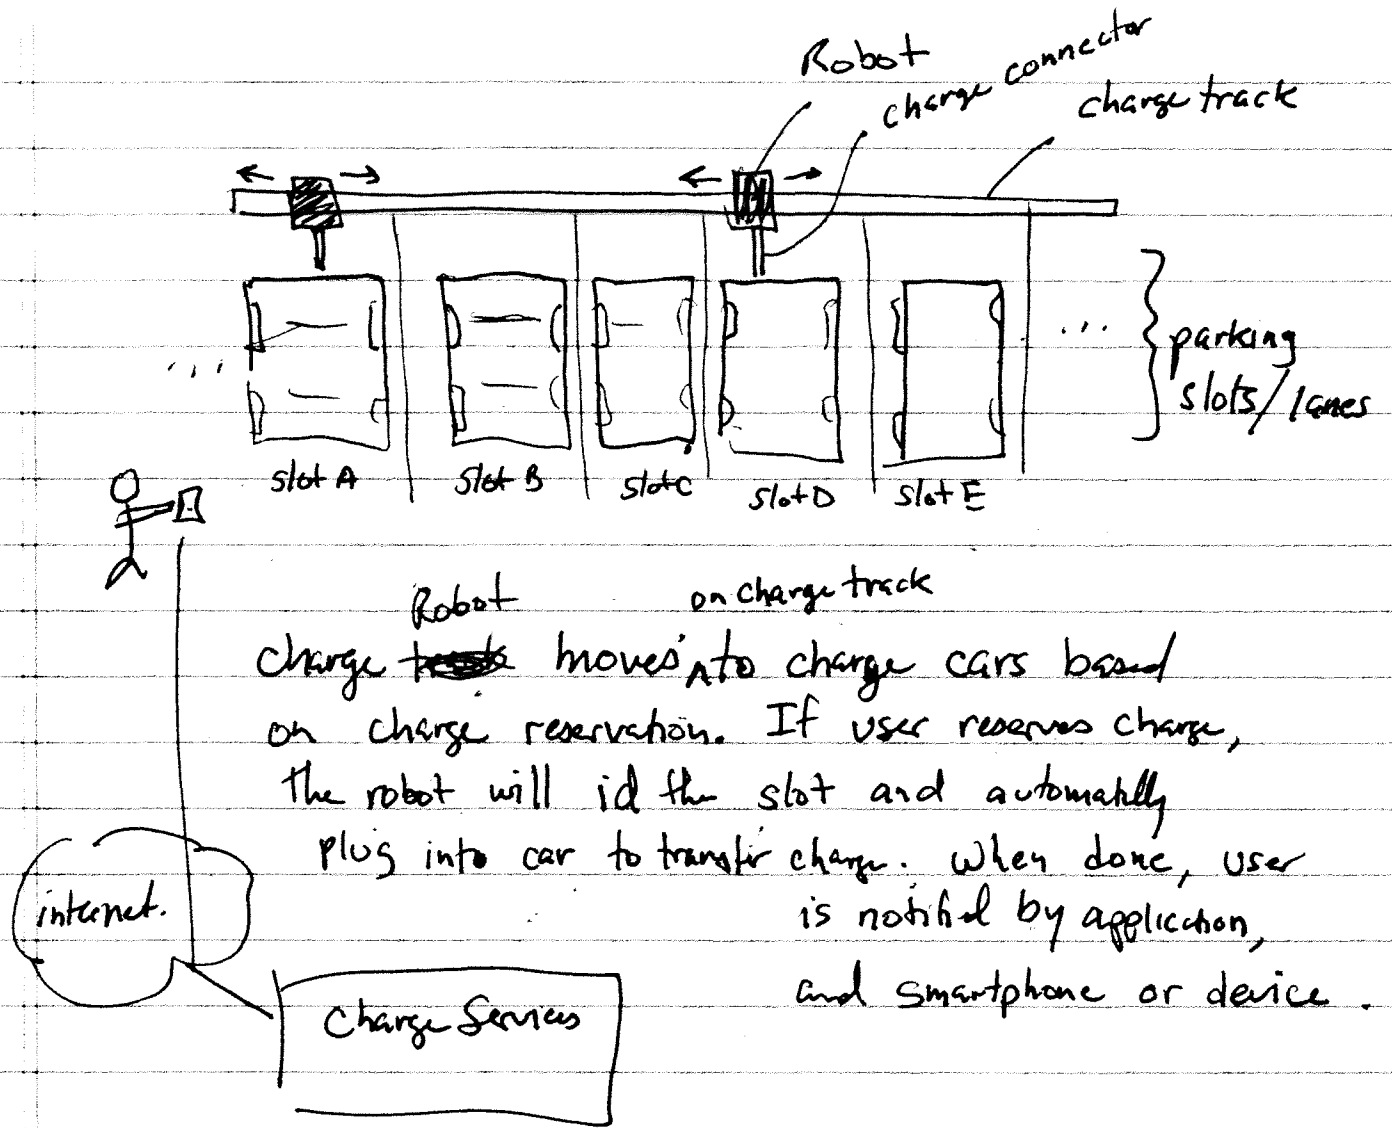 Robot
charge connector
charge track
parking
slots/lanes
slot A
slot B
slot C
slot D
slot E
Robot on charge track
charge moves to charge cars based
on charge reservation. If user reserves charge,
the robot will id the slot and automatically
plug into car to transfer charge. When done, user
is notified by application,
and smartphone or device.
internet.
Charge Services